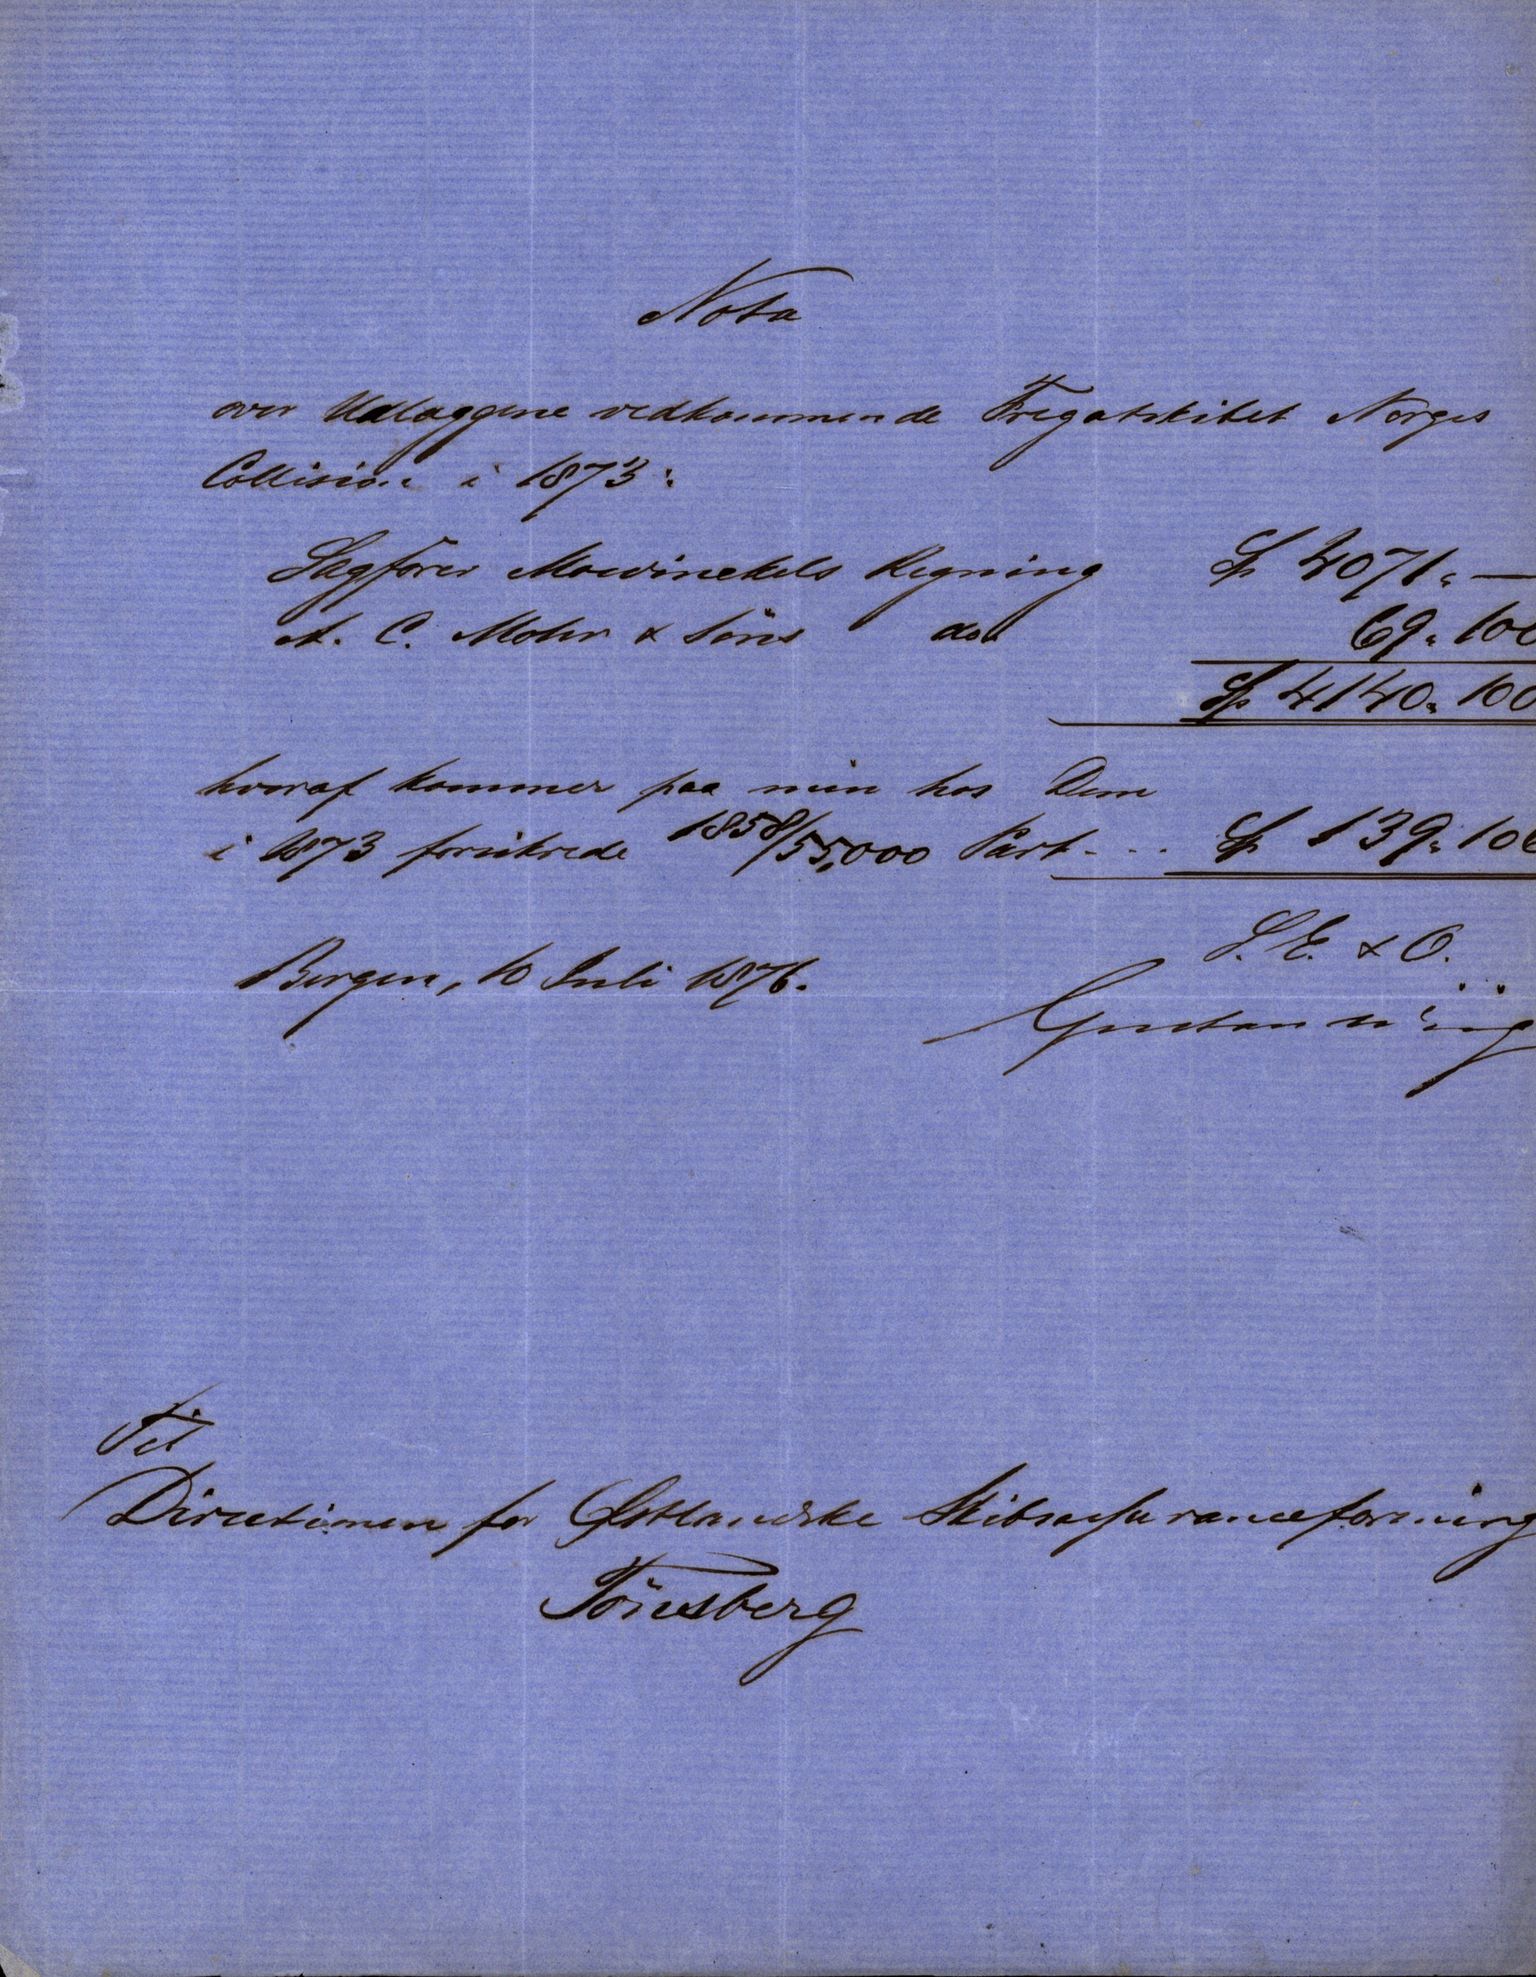 Nota
over Udlæggene vedkommende Fregatskibet Norges
Collision i 1873:
Sagfører Mowinckels Regning Sp 4071. —
A. C. Mohr & Søns do. 69. 100
Sp 4140. 100
hvoraf kommer paa min hos Dem
i 1873 forsikrede 1858/55,000 Part - - - Sp 139. 106
S. E. & O.
Bergen, 10 Juli 1876.
Til
Directionen for Østlandske Skibsassuranceforening
Tönsberg